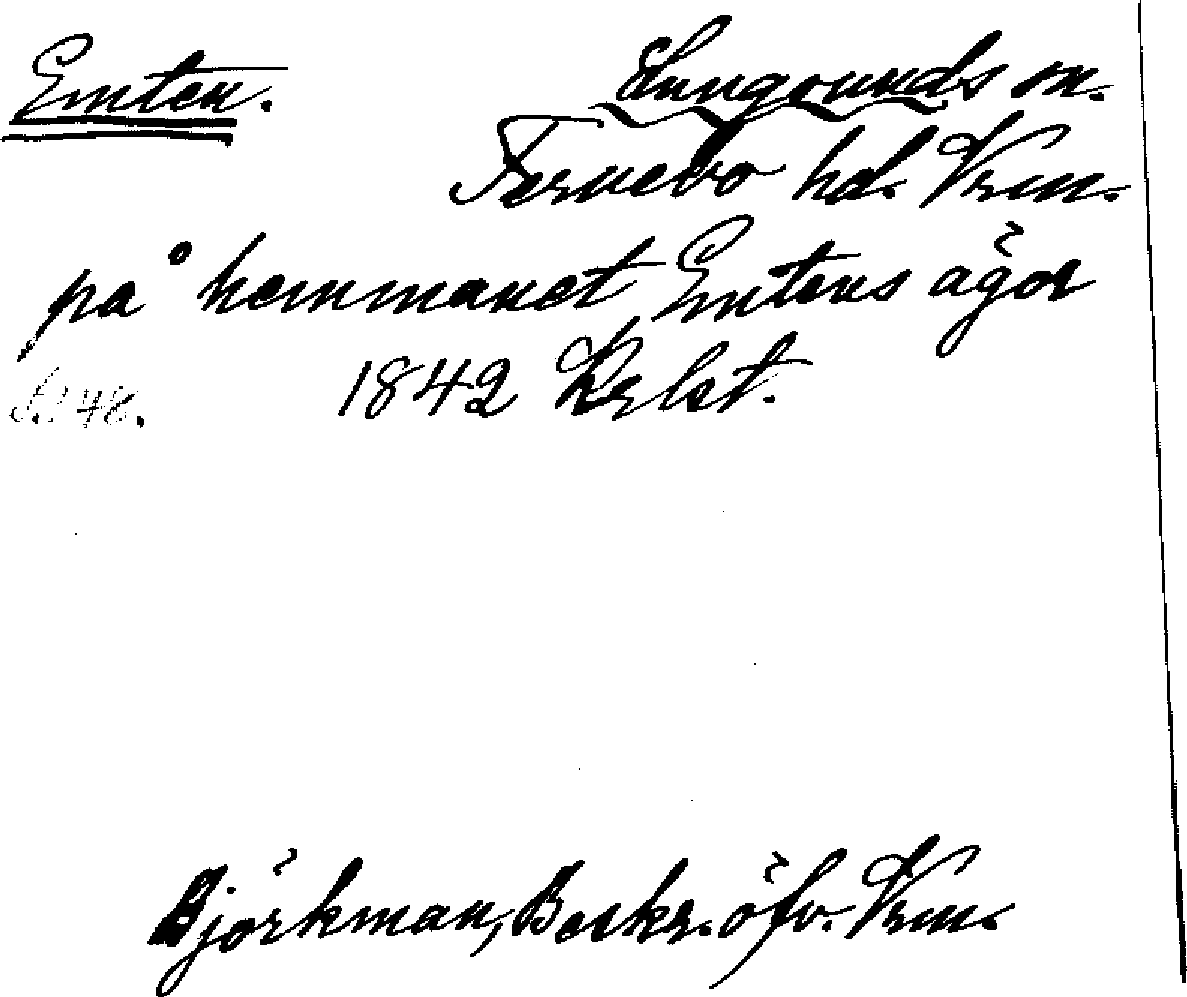 Emten. Lungsunds sn.
Fernebo hd. Vrm.
på hemmanet Emtens ägor
1842 Krlst.
Björkman, Beskr. öfv. Vrm.